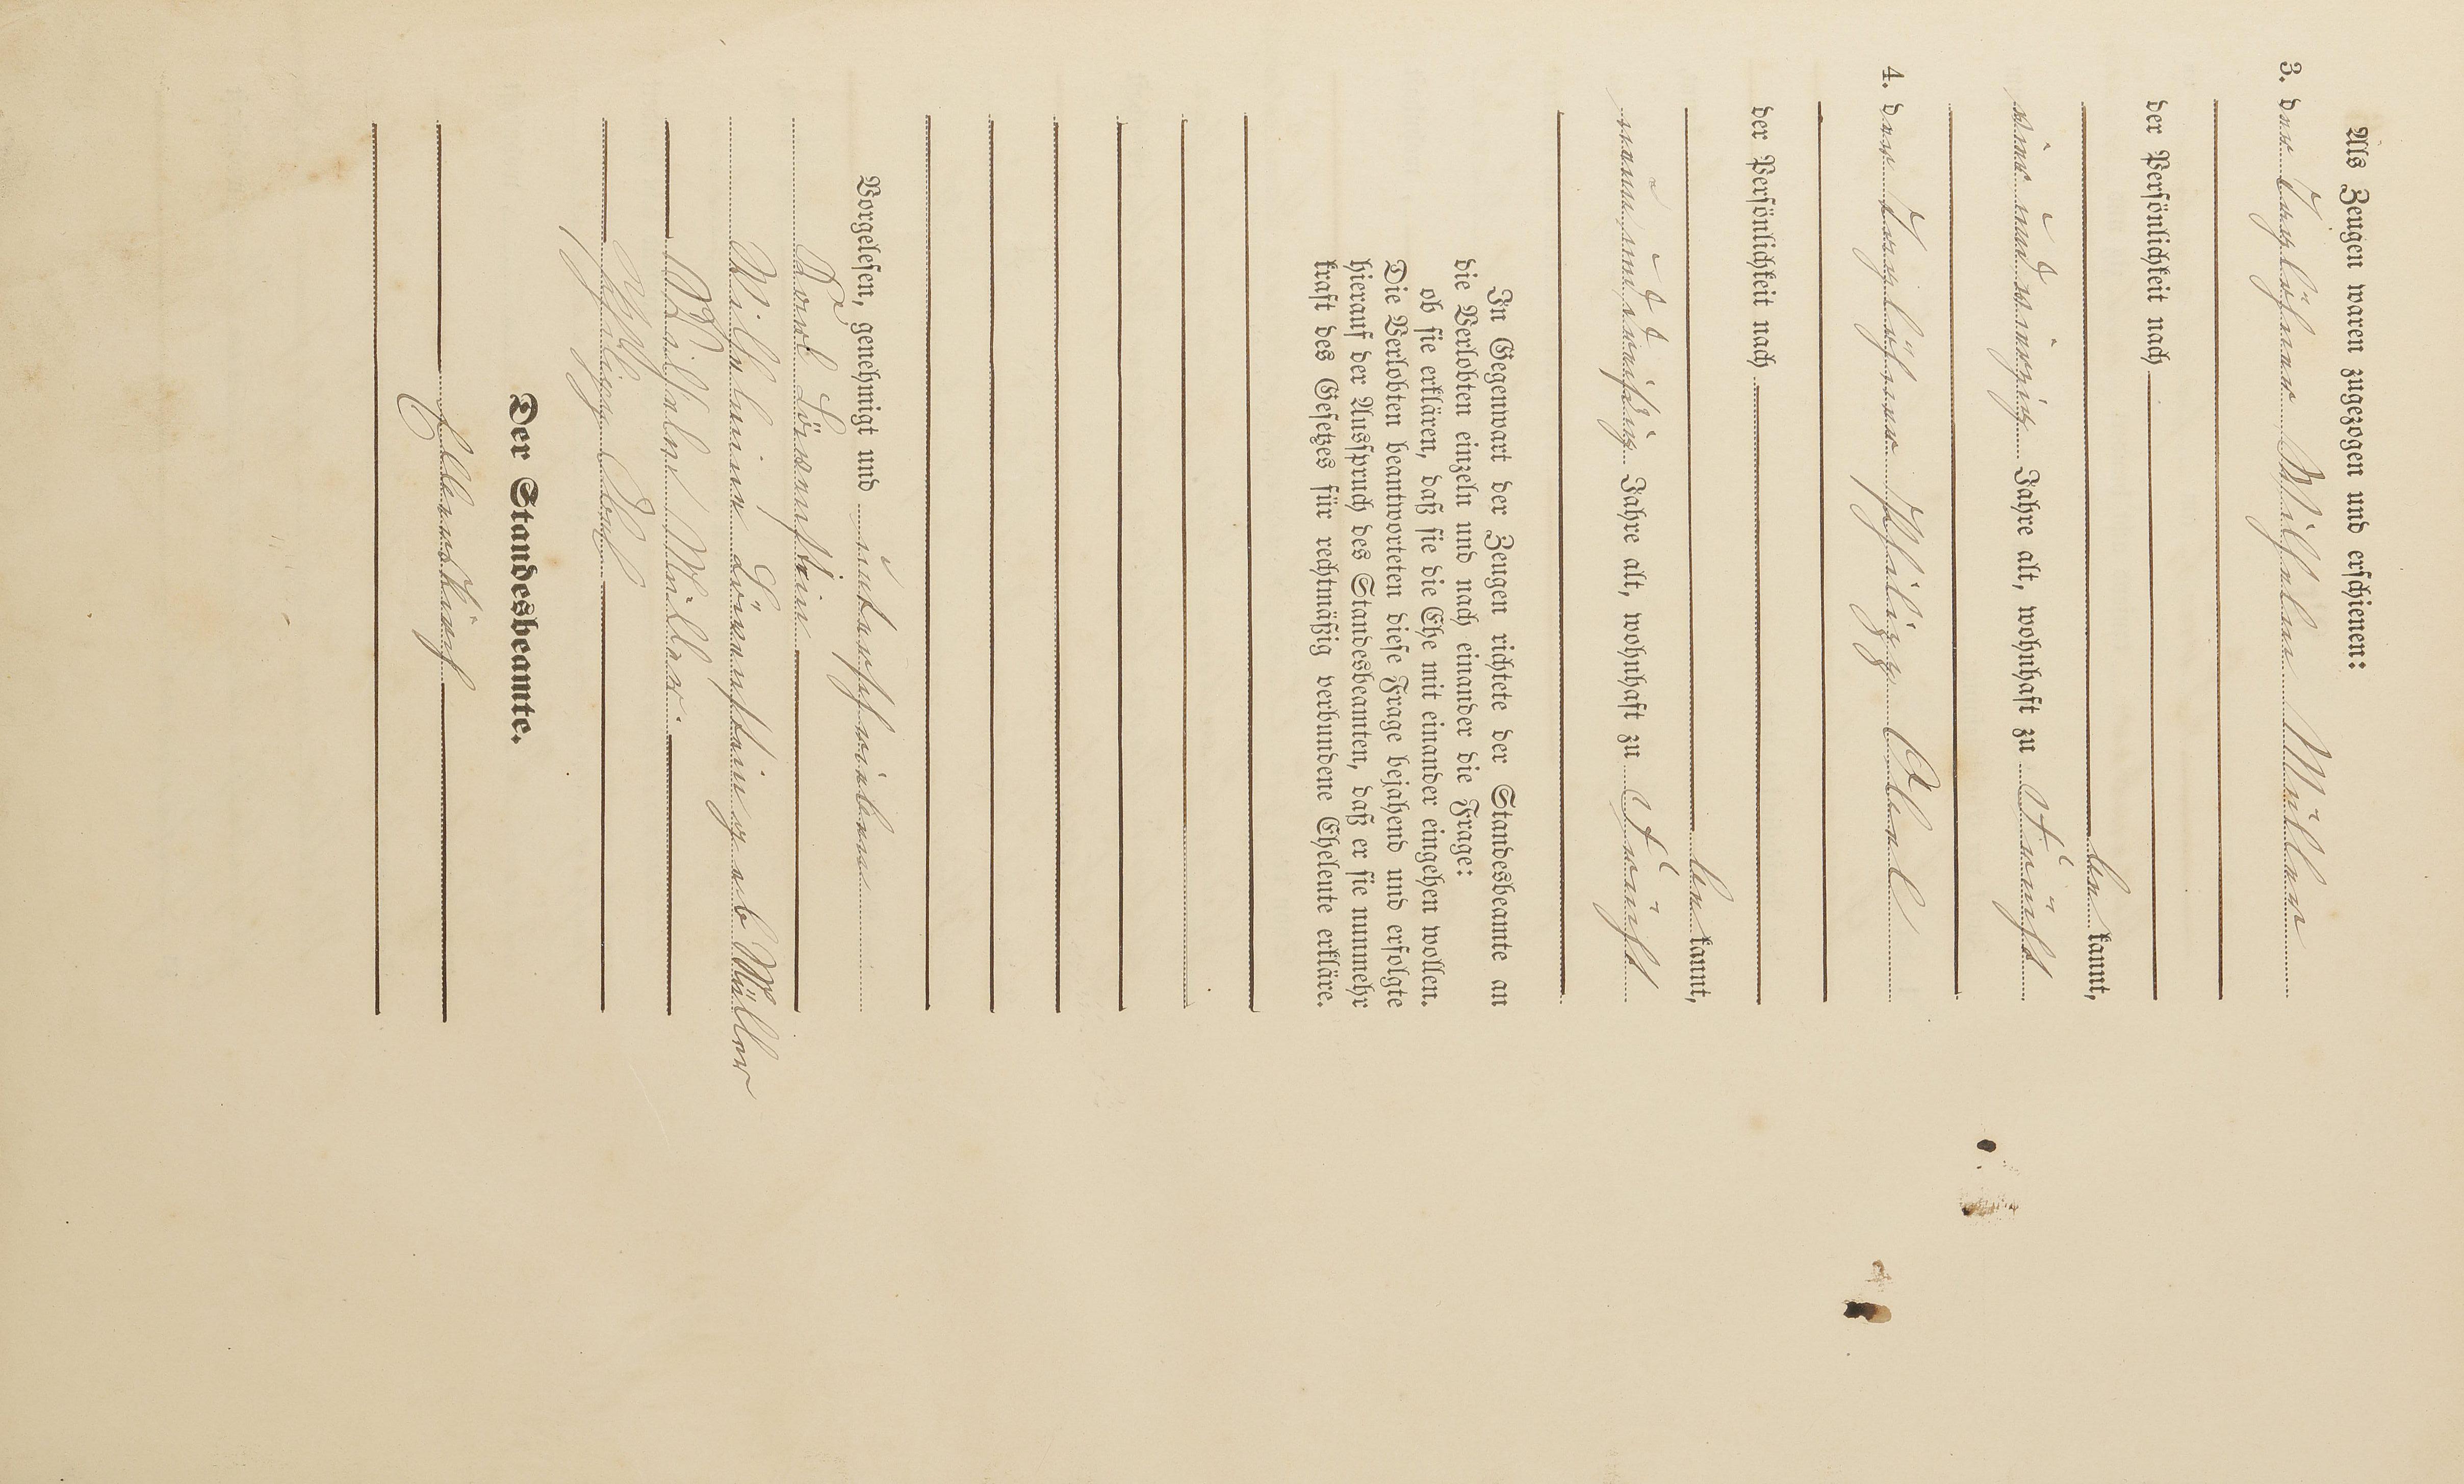 Als Zeugen waren zugezogen und erschienen:
3. der Tagelöhner Wilhelm Müller
der Persönlichkeit nach
be kannt,
ein und vierzig Jahre alt, wohnhaft zu
4. der Tagelöhner Philipp Abel
der Persönlichkeit nach
be kannt,
neun und zwanzig Jahre alt, wohnhaft zu
In Gegenwart der Zeugen richtete der Standesbeamte an
die Verlobten einzeln und nach einander die Frage:
ob sie erklären, daß sie die Ehe mit einander eingehen wollen.
Die Verlobten beantworteten diese Frage bejahend und erfolgte
hierauf der Ausspruch des Standesbeamten, daß er sie nunmehr
kraft des Gesetzes für rechtmäßig verbundene Eheleute erkläre.
Vorgelesen, genehmigt und unterschrieben
Karl Löwenstein
Wilhelmine Löwenstein geb Müller
Wilhelm Müller.
Philipp Abel
Der Standesbeamte.